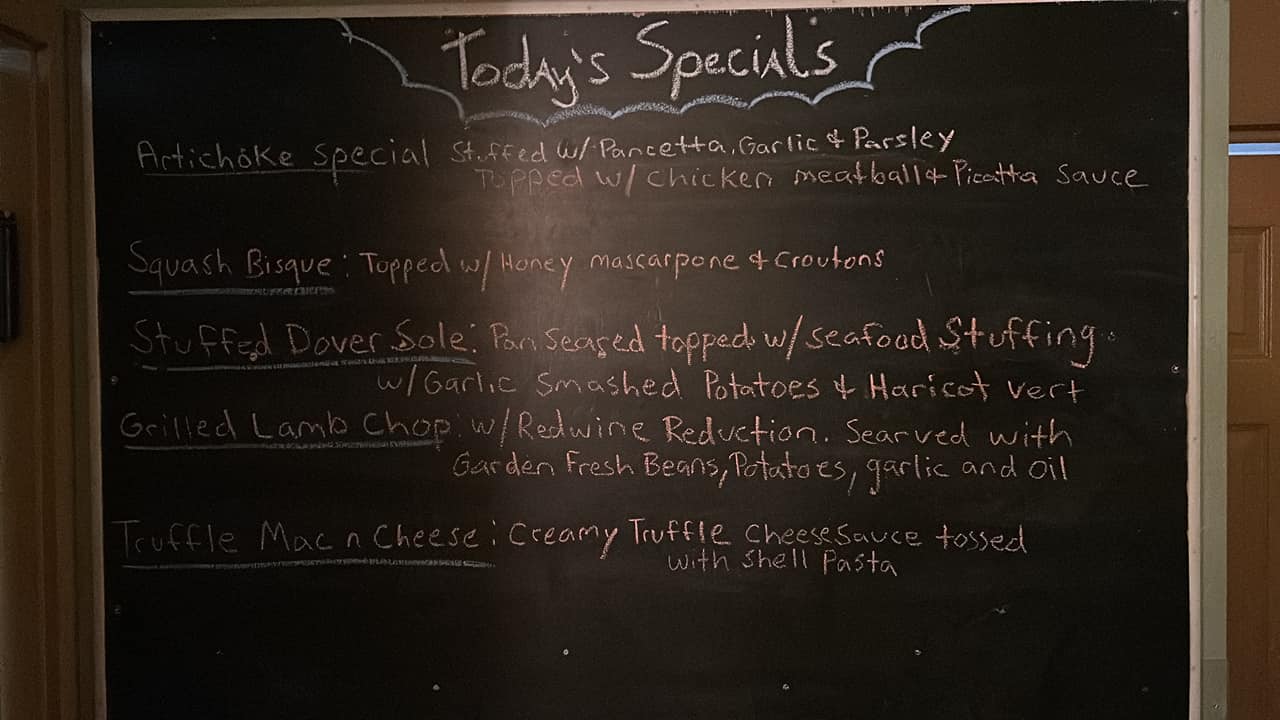 Today's Specials
Artichoke Special Stuffed w/ Pancetta, Garlic & Parsley
Topped w/ Chicken meatball & Picatta Sauce
Squash Bisque: Topped w/ Honey mascarpone & Croutons
Stuffed Dover Sole: Pan Seared topped w/ seafood Stuffing.
w/ Garlic Smashed Potatoes & Haricot vert
Grilled Lamb Chop: w/ Redwine Reduction. Searved with
Garden Fresh Beans, Potatoes, garlic and oil
Truffle Mac n Cheese: Creamy Truffle Cheese Sauce tossed
with Shell Pasta